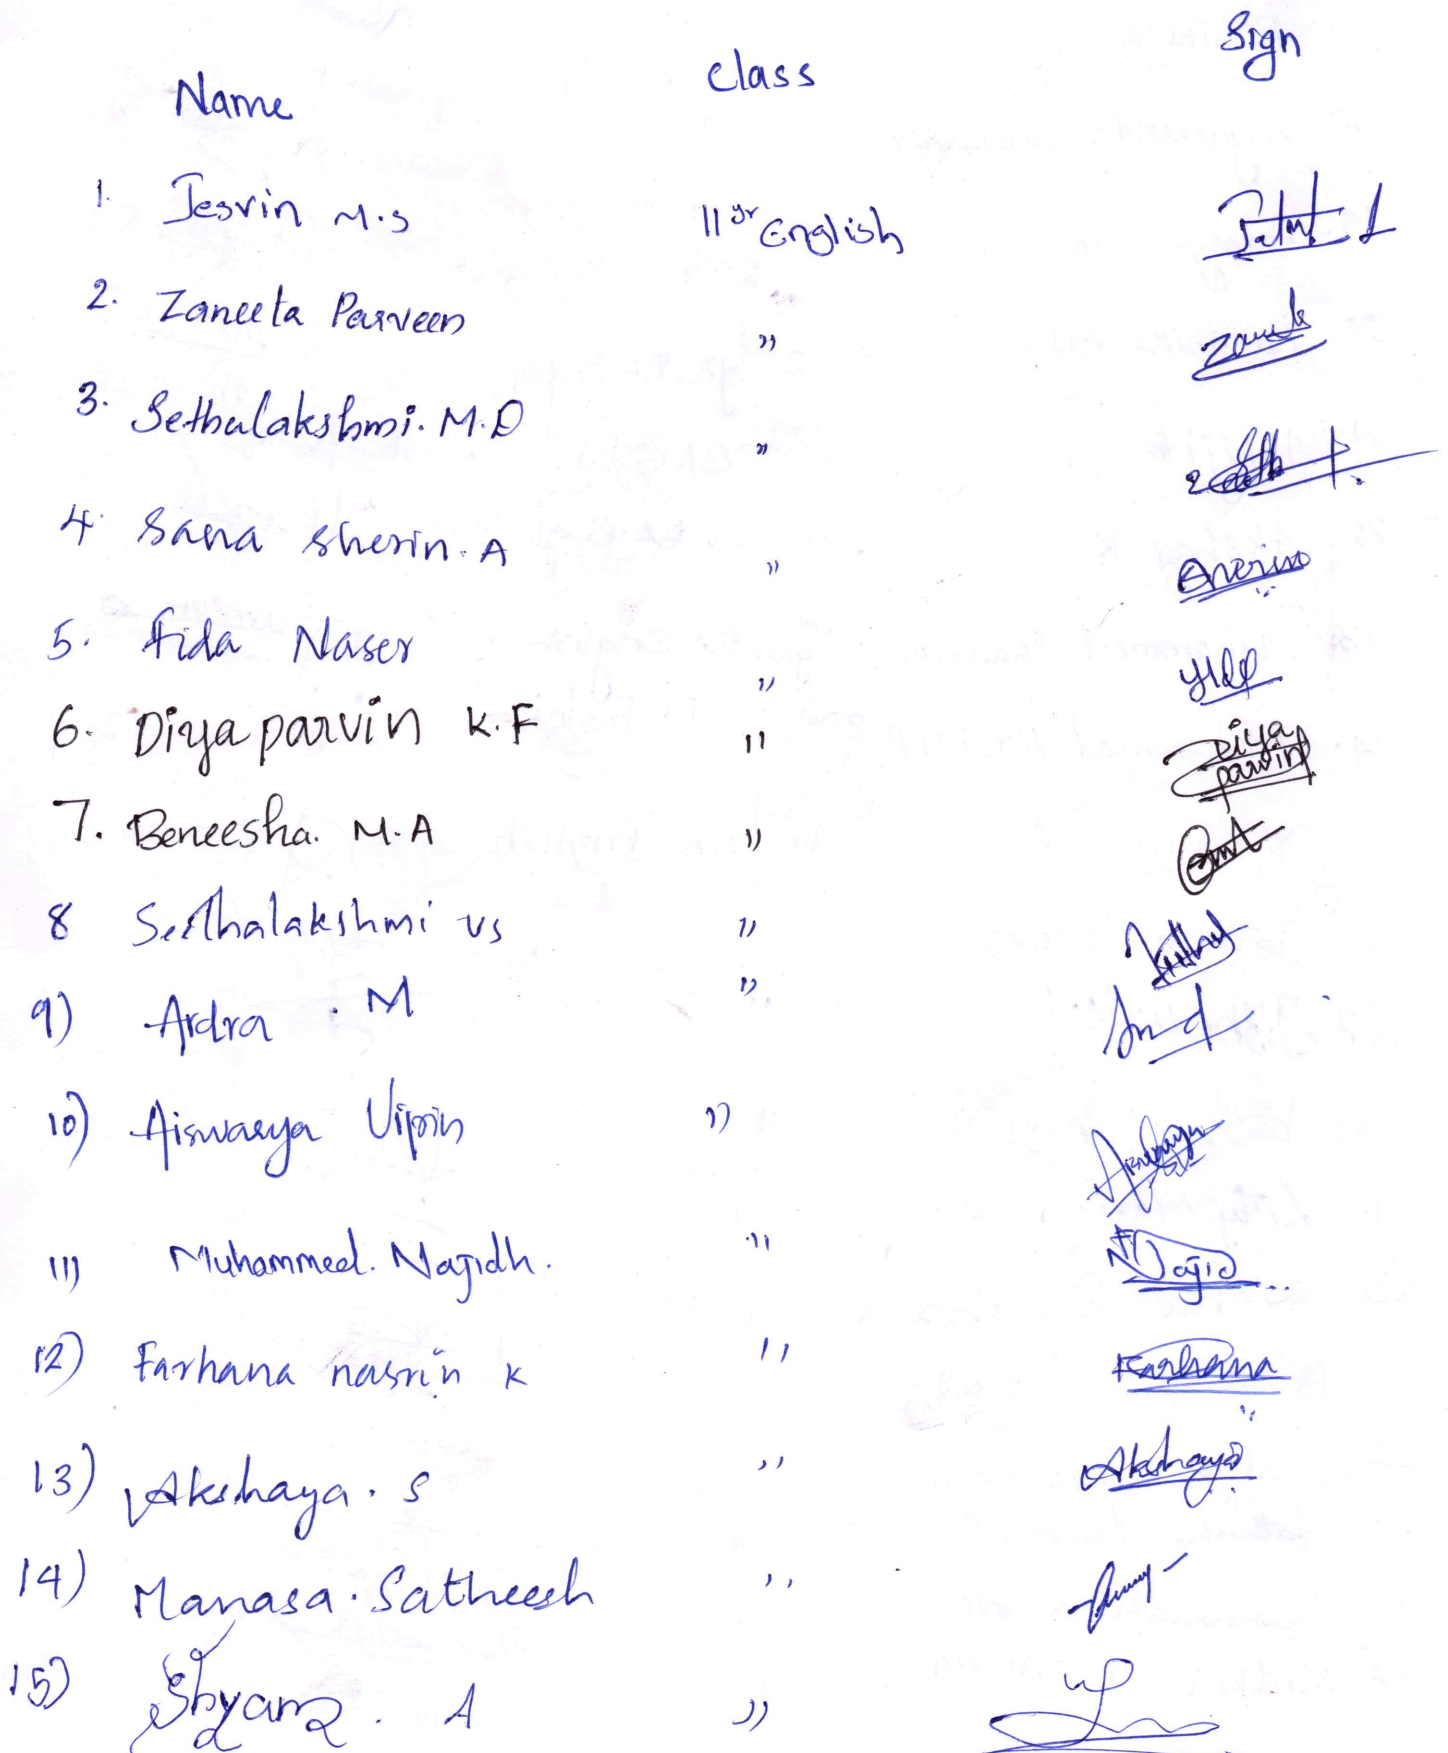 Name Class Sign
1. Jesvin M.S 11 yr English
2. Zaneeta Parveen ,,
3. Sethulakshmi. M.D ,,
4. Sana Sherin. A ,,
5. Fida Naser ,,
6. Diya parvin K.F ,, Diya parvin
7. Beneesha. M.A ,,
8 Seethalakshmi VS ,,
9) Ardra . M ,,
10) Aiswarya Vipin ,, Aiswarya
11) Muhammed. Najidh. ,, Najid
12) Farhana nasrin K ,, Farhana
13) Akshaya. S ,, Akshaya
14) Manasa. Satheesh ,,
15) Shyam . A ,,